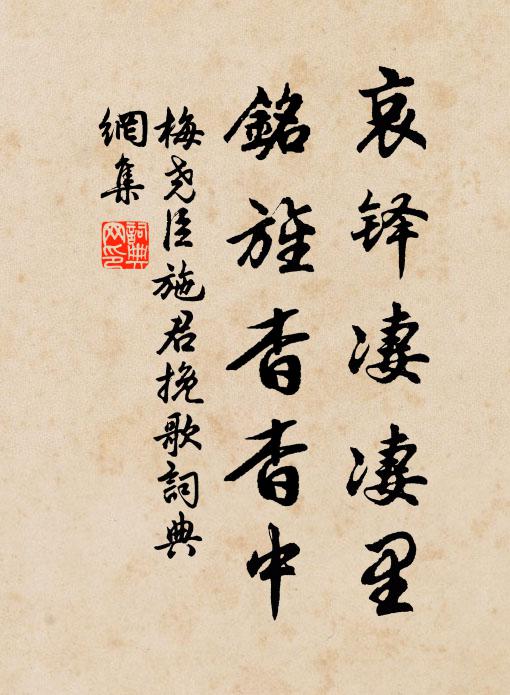 哀铎凄凄里
銘旌杳杳中
梅尧臣施君挽歌詞典
網集
詞典
网印